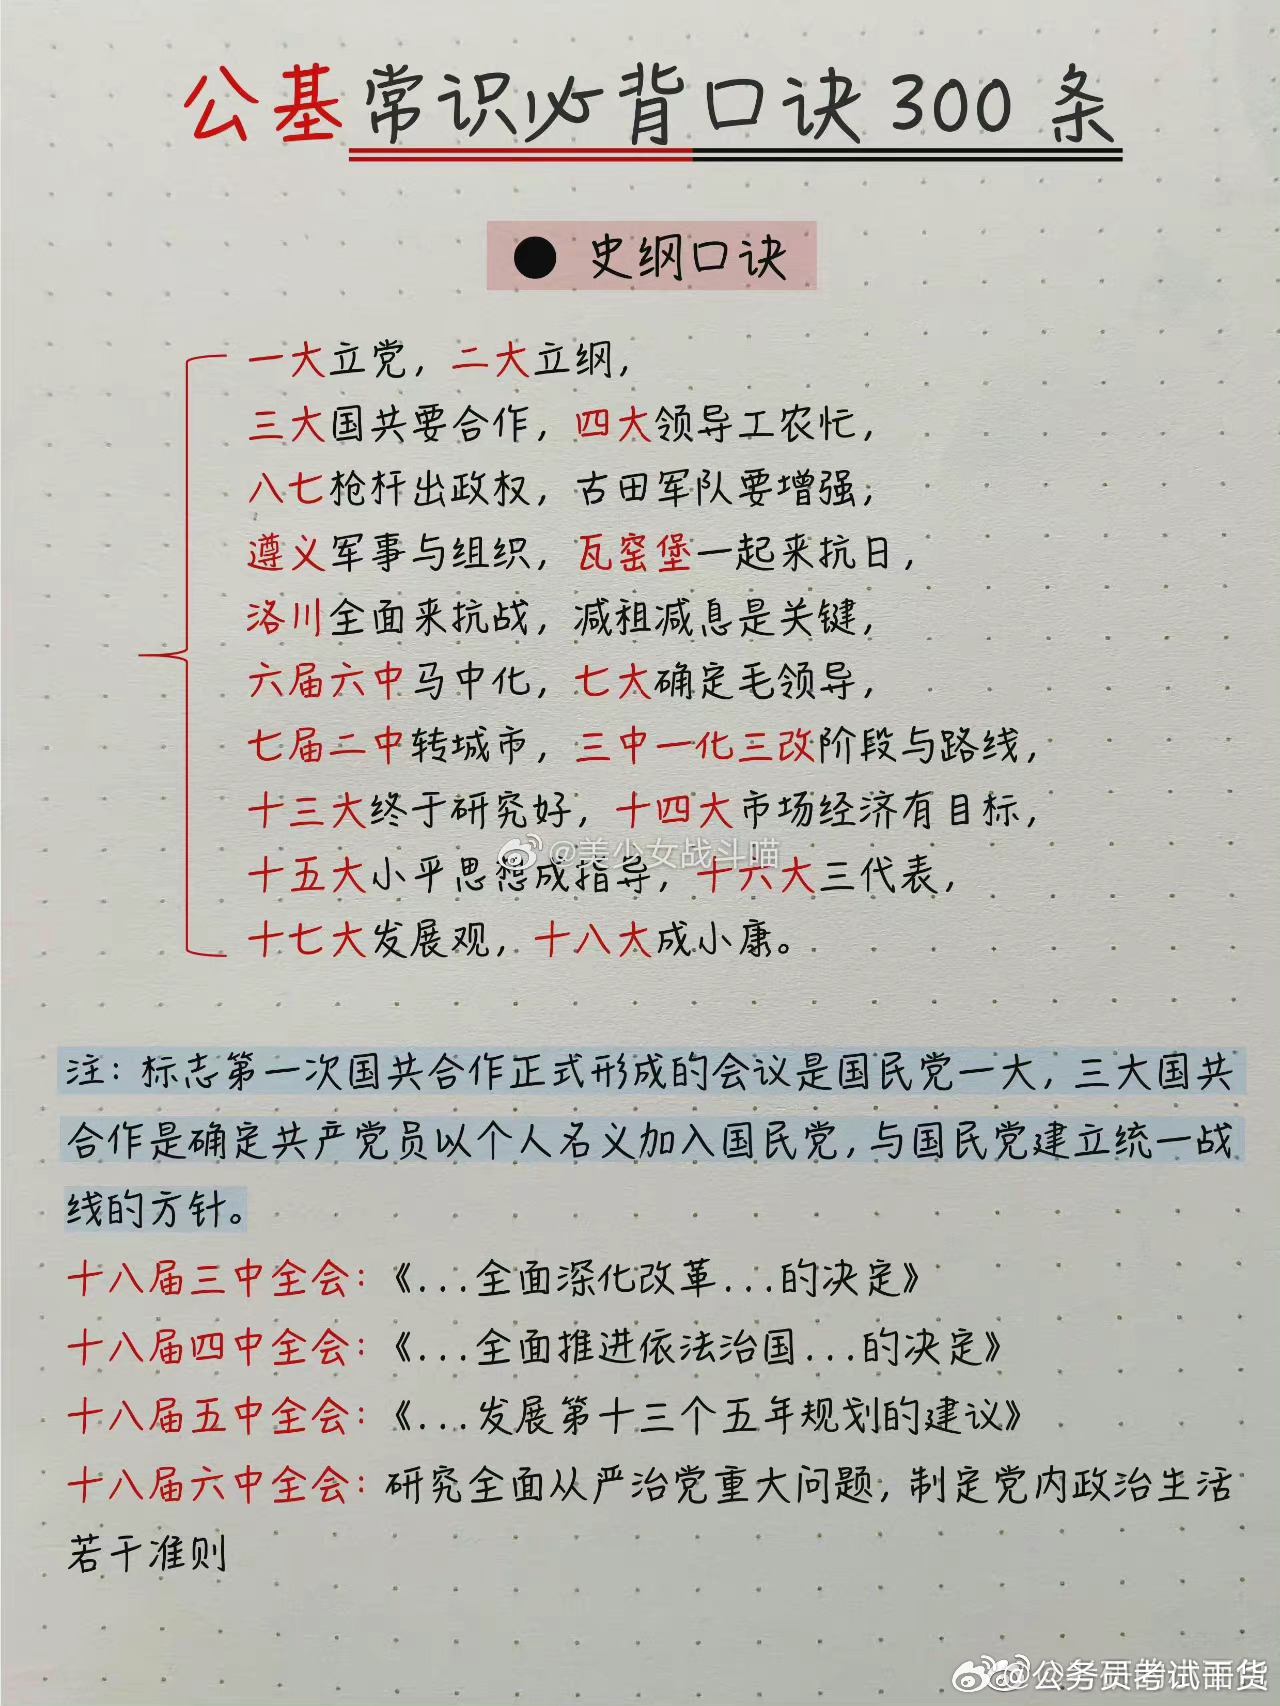 公基常识必背口诀300条
● 史纲口诀
一大立党，二大立纲，
三大国共要合作，四大领导工农忙，
八七枪杆出政权，古田军队要增强，
遵义军事与组织，瓦窑堡一起来抗日，
洛川全面来抗战，减租减息是关键，
六届六中马中化，七大确定毛领导，
七届二中转城市，三中一化三改阶段与路线，
十三大终于研究好，十四大市场经济有目标，
@美少女战斗喵
十五大小平思想成指导，十六大三代表，
十七大发展观，十八大成小康。
注：标志第一次国共合作正式形成的会议是国民党一大，三大国共
合作是确定共产党员以个人名义加入国民党，与国民党建立统一战
线的方针。
十八届三中全会：《...全面深化改革...的决定》
十八届四中全会：《...全面推进依法治国...的决定》
十八届五中全会：《...发展第十三个五年规划的建议》
十八届六中全会：研究全面从严治党重大问题，制定党内政治生活
若干准则
@公务员考试干货